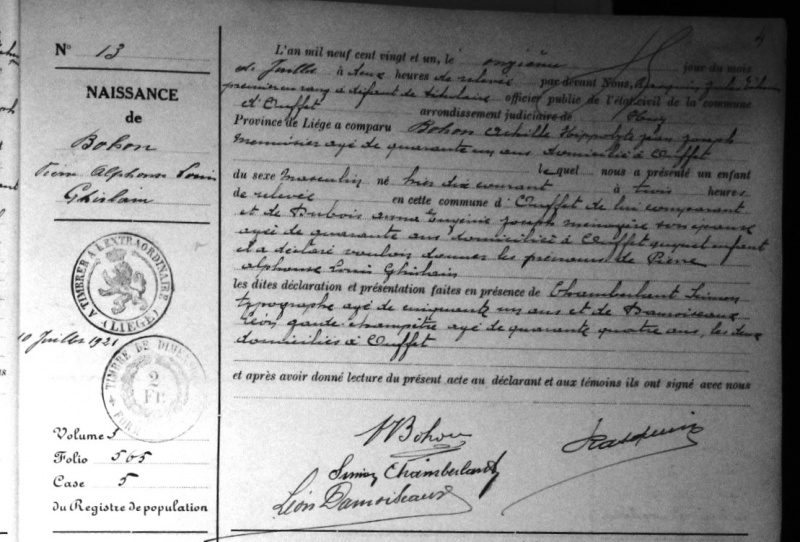 N° 13
NAISSANCE
de
Bohon
Pierre Alphonse Louis
Ghislain
A TIMBRER A L'EXTRAORDINAIRE
(LIÈGE)
10 Juillet 1921
TIMBRE DE DIMENSION
2
FR.
Volume 3
Folio 565
Case 5
du Registre de population
L'an mil neuf cent vingt et un, le onzième jour du mois
de Juillet à deux heures de relevée par devant Nous, Jules
premier en rang à défaut de titulaire officier public de l'état civil de la commune
d'Ouffet arrondissement judiciaire de Huy
Province de Liége a comparu Bohon Achille Hippolyte Jean Joseph
Menuisier agé de quarante un ans domicilié à Ouffet
lequel nous a présenté un enfant
du sexe Masculin né hier dix courant à trois heures
de relevée en cette commune d'Ouffet de lui comparant
et de Dubois Anna Eugénie Joseph ménagère son épouse
agée de quarante ans domiciliée à Ouffet auquel enfant
il a déclaré vouloir donner les prénoms de Pierre
Alphonse Louis Ghislain
les dites déclaration et présentation faites en présence de Chamberlant Simon
typographe agé de cinquante un ans et de Damoiseaux
Léon garde-champêtre agé de quarante quatre ans, les deux
domiciliés à Ouffet
et après avoir donné lecture du présent acte au déclarant et aux témoins ils ont signé avec nous
A Bohon
Simon Chamberlant
Léon Damoiseaux